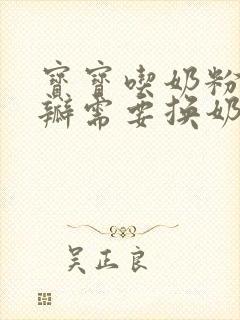 寶寶喫奶粉
瓣需要換奶
吴正良